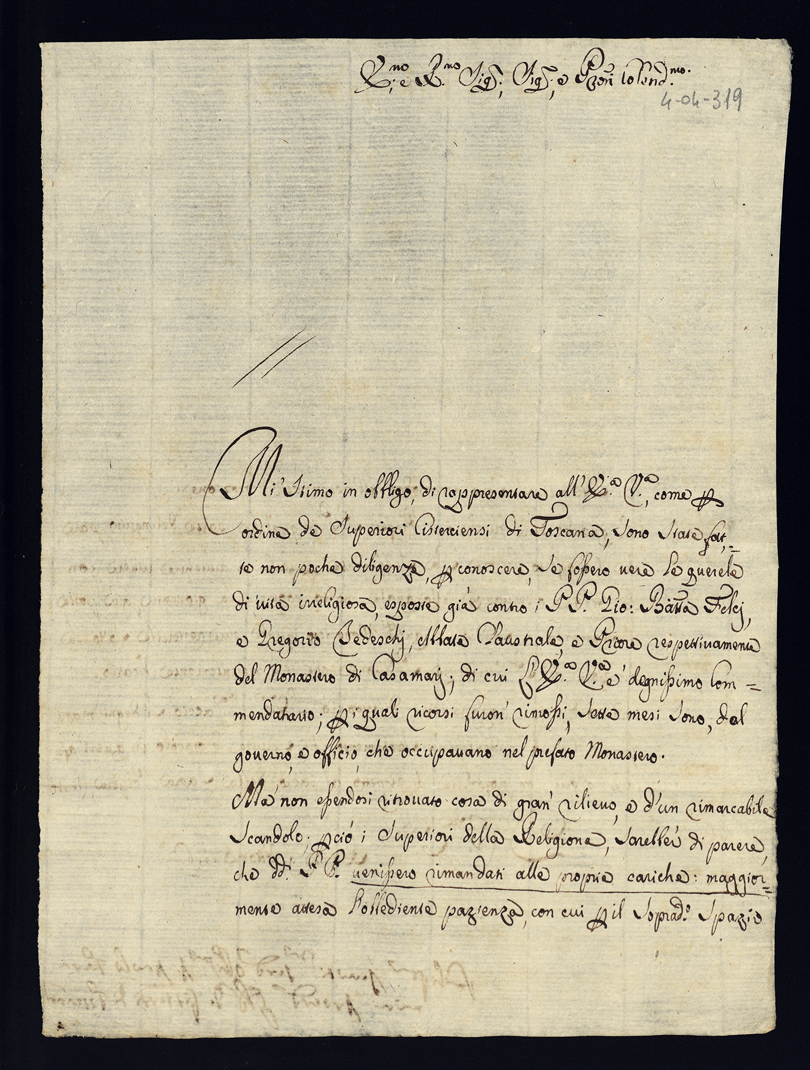 E.mo e R.mo Sig.r, Sig.r, e Pron Col.end.mo
4-04-319
Mi stimo in obbligo, di rappresentare all' E.a V.a, come p
ordine de Superiori Cisterciensi di Toscana, sono state fat,=
te non poche diligenze, p conoscere, se fossero vere le querele
di vita irreligiosa, esposte già contro i P.P. Gio: Batta Felcj,
e Gregorio Tedeschj, Abbate Claustrale, e Priore respettivamente
del Monastero di Casamarj; di cui l' E.a V.a è degnissimo Com=
mendatario; p i quali ricorsi furon' rimossi, sette mesi sono, dal
governo, e officio, che occupavano nel prefato Monastero.
Ma non essendosi ritrovato cosa di gran' rilievo, e d'un rimarcabile
Scandolo; pciò i Superiori della Religione, sarebber' di parere,
che dd.i P.P. venissero rimandati alle proprie cariche: maggior=
mente attesa l'obbediente pazienza, con cui p il soprad.o spazio